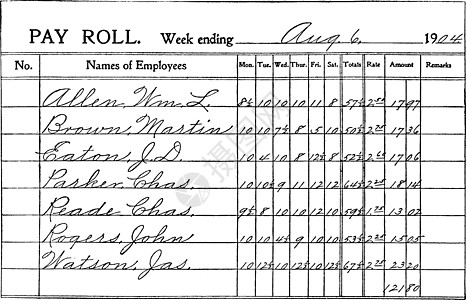 PAY ROLL. Week ending Aug. 6, 1904
No. Names of Employees Mon. Tue. Wed. Thur. Fri. Sat. Totals Rate Amount Remarks
Allen, Wm. L. 8½ 10 10 10 11 8 57½ 17 97
Brown, Martin 10 10 7½ 8 5 10 50½ 17 36
Eaton, J. D. 10 4 10 8 12½ 8 52½ 17 06
Parker, Chas. 10 10½ 9 11 12 12 64½ 18 14
Reade, Chas. 9½ 8 10 10 12 10 59½ 13 02
Rogers, John 10 10 4½ 9 10 10 53½ 15 05
Watson, Jas. 10 12½ 10 12½ 10 12½ 67½ 23 20
121 80